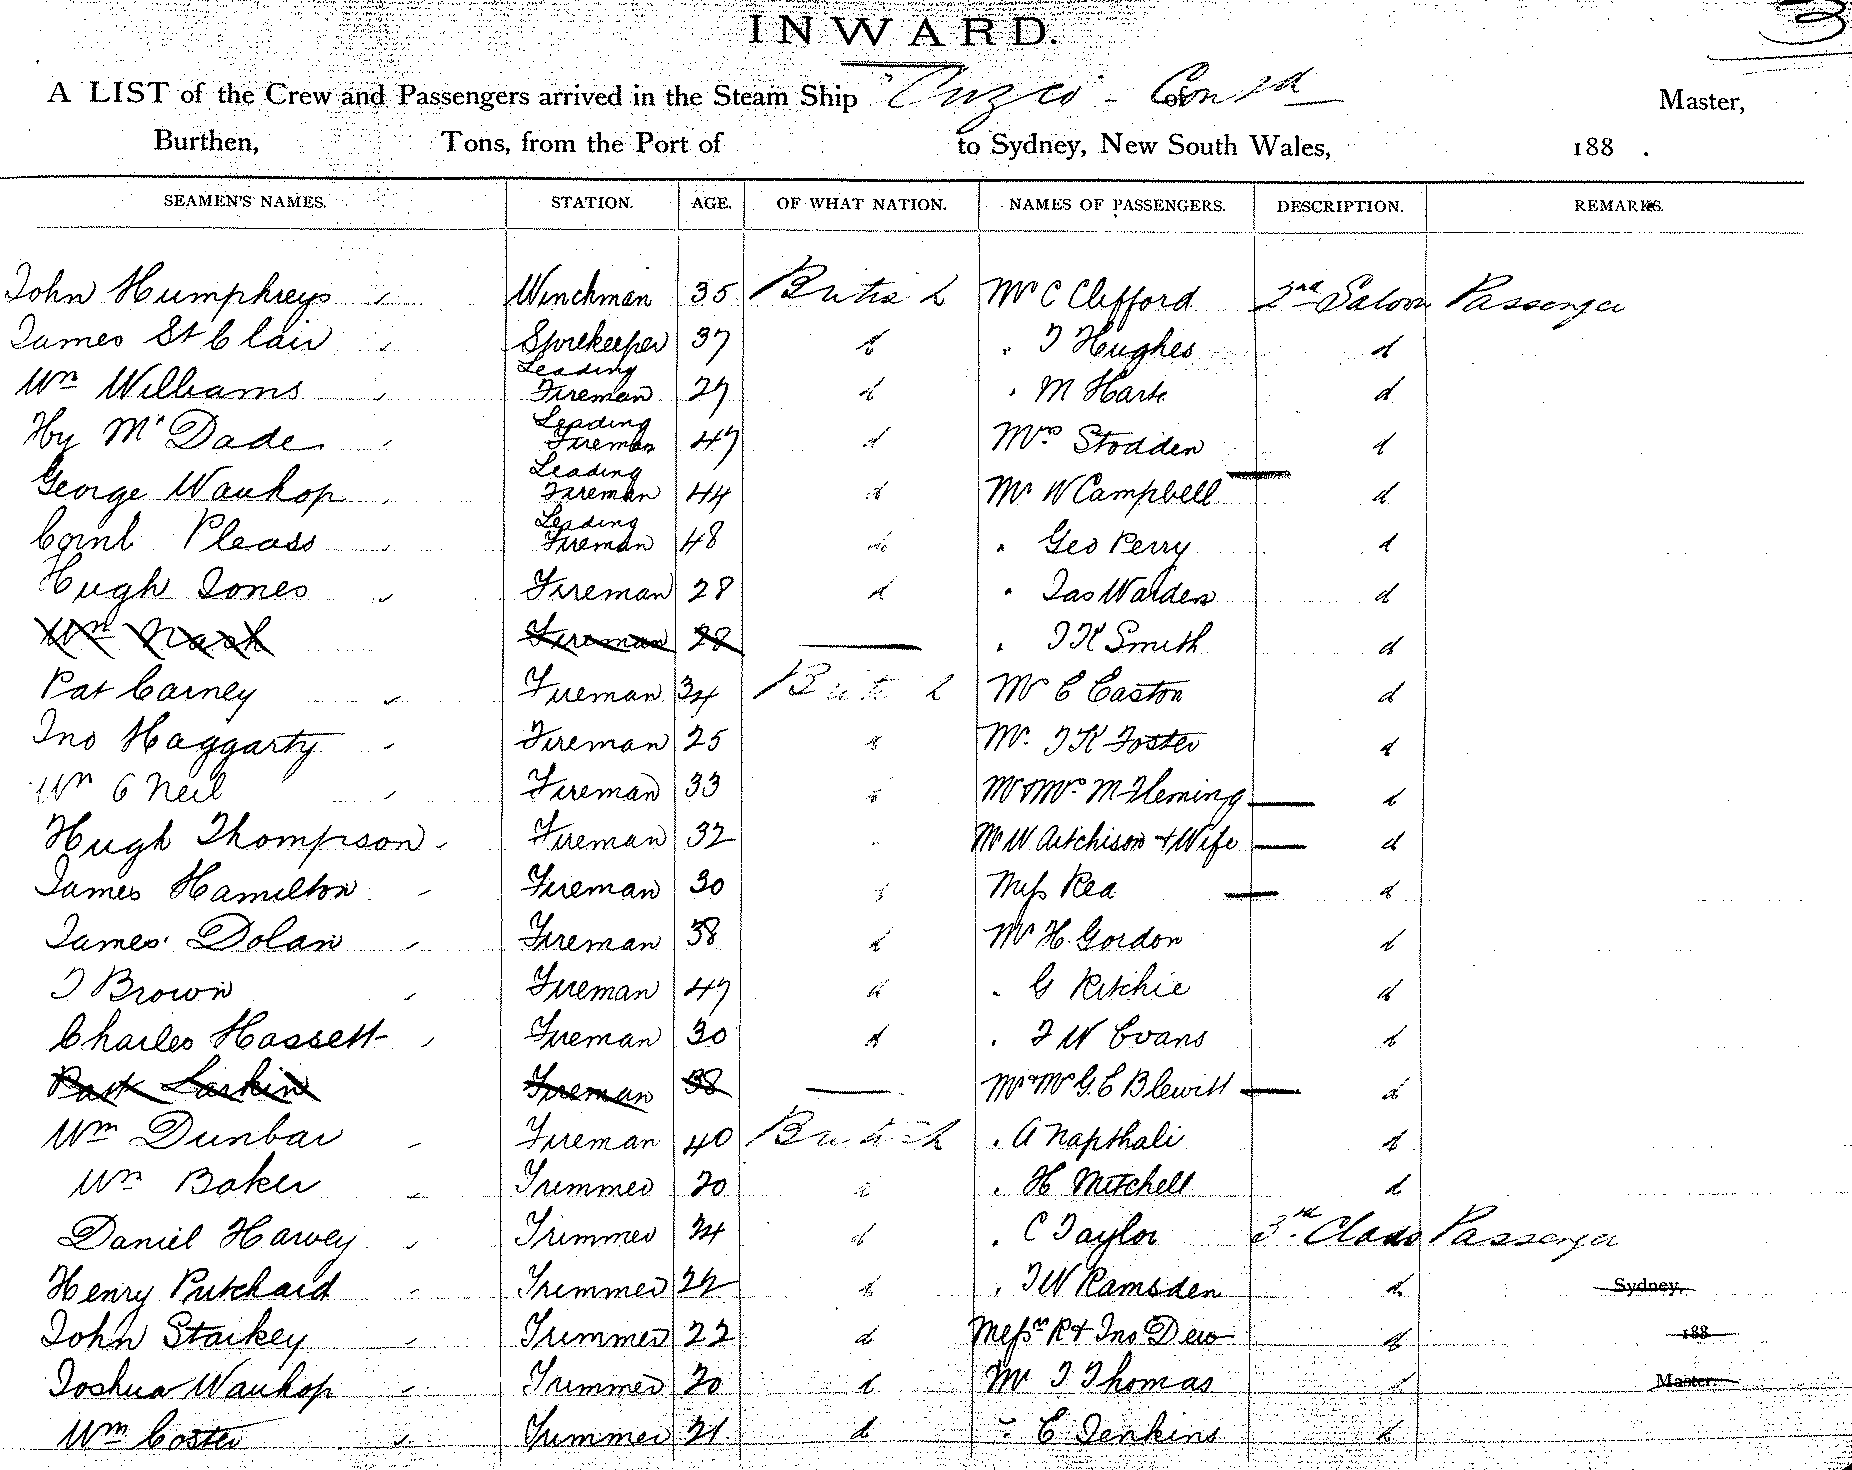 INWARD.
A LIST of the Crew and Passengers arrived in the Steam Ship "Cuzco" - Contd of Master,
Burthen, Tons, from the Port of to Sydney, New South Wales, 188 .
SEAMEN'S NAMES. STATION. AGE. OF WHAT NATION. NAMES OF PASSENGERS. DESCRIPTION. REMARKS.
John Humphreys Winchman 35 British Mr C Clifford 2nd Saloon Passenger
James St Clair Storekeeper 37 d " J Hughes d
Wm Williams Leading Fireman 27 d " M Hart d
Hy McDade Leading Fireman 47 d Mrs Stodden d
George Wauhop Leading Fireman 44 d Mr W Campbell d
Cornl Pleass Leading Fireman 48 do " Geo Perry d
Hugh Jones Fireman 28 d " Jas Warden d
Wm Nash Fireman 28 " J K Smith d
Pat Carney Fireman 34 British Mr C Easton d
Jno Haggarty Fireman 25 d Mr J K Foster d
Wm O Neil Fireman 33 d Mr & Mrs M Fleming d
Hugh Thompson Fireman 32 Mr W Aitchison & Wife d
James Hamilton Fireman 30 d Miss Rea d
James Dolan Fireman 38 d Mr H. Gordon d
J Brown Fireman 47 d " G Ritchie d
Charles Hassett Fireman 30 d " F W Evans d
Patk Larkin Fireman 38 Mr & Mrs G. C Blewitt d
Wm Dunbar Fireman 40 British " A Napthali d
Wm Baker Trimmer 20 d " H Mitchell d
Daniel Harvey Trimmer 24 d " C Taylor 3rd Class Passenger
Henry Pritchard Trimmer 22 d " J W Ramsden d Sydney,
John Starkey Trimmer 22 d Messrs R & Jno Dew d 188
Joshua Wauhop Trimmer 20 d Mr J Thomas d Master.
Wm Coster Trimmer 21 d " C Jenkins d